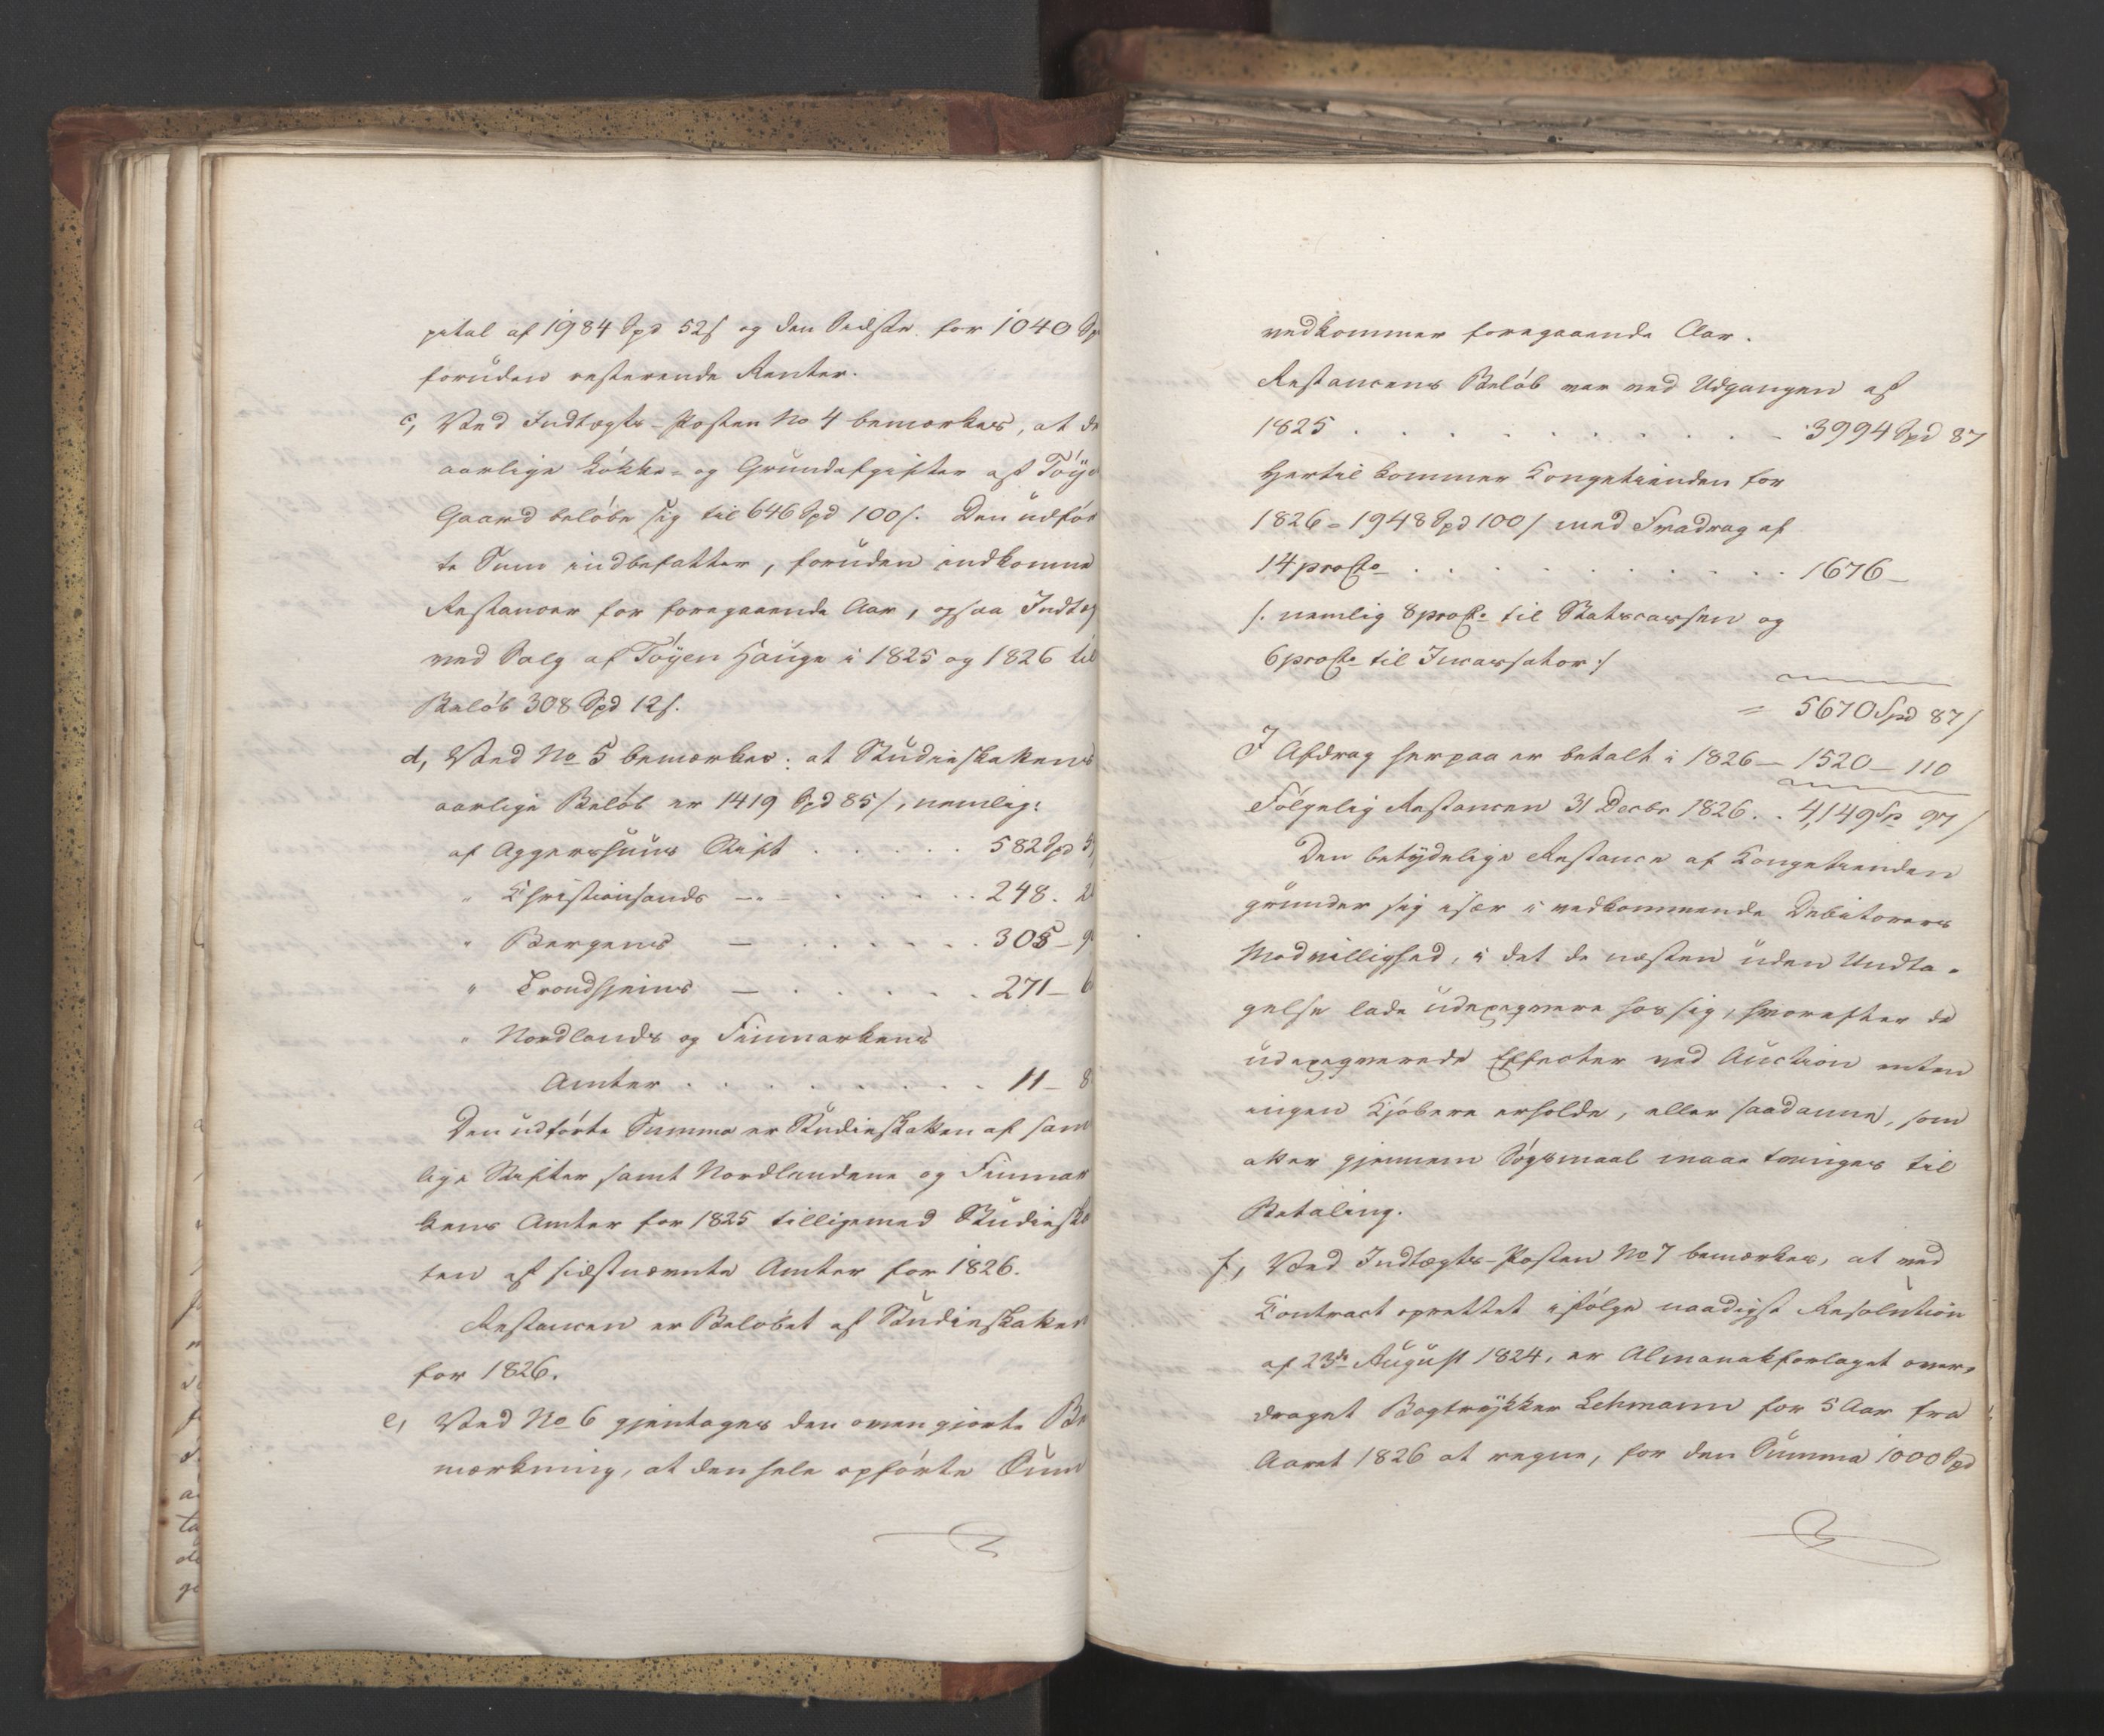 pital af 1984 Spd 52 s og den Sidste for 1040 Sp
foruden resterende Renter.
c, Ved Indtægts-Posten No 4 bemærkes, at de
aarlige Løkke- og Grundafgifter af Tøye
Gaard beløbe sig til 646 Spd 100 s. Den udfør
te Sum indbefatter, foruden indkomne
Restancer for foregaaende Aar, ogsaa Indtæg
ved Salg af Tøyen Hauge i 1825 og 1826 til
Beløb 308 Spd 12 s.
d, Ved No 5 bemærkes: at Studieskattens
aarlige Beløb er 1419 Spd 85 s, nemlig:
af Aggershuus Stift . . . . . 582 Spd 5
" Christiansands —"— . . . . . 248. 2
" Bergens — . . . . . . 305 – 9
" Trondhjems — . . . . . . 271 – 6
" Nordlands og Finmarkens
Amter . . . . . . . . . 11 – 8
Den udførte Summa er Studieskatten af sam
lige Stifter samt Nordlandene og Finmar
kens Amter for 1825 tilligemed Studieska
ten af sidstnævnte Amter for 1826.
Restancen er Beløbet af Studieskatten
for 1826.
e, Ved No 6 gjentages den oven gjorte Be
mærkning, at den hele opførte Sum
vedkommer foregaaende Aar.
Restancens Beløb var ved Udgangen af
1825 . . . . . . . . . . . 3994 Spd 87
Hertil kommer Kongetienden for
1826 = 1948 Spd 100 s med Fradrag af
14 procto . . . . . . . . . . . 1676 –
/: nemlig 8 procto til Statscassen og
6 procto til Incassator :/
= 5670 Spd 87 s
I Afdrag herpaa er betalt i 1826 — 1520 – 110
Følgelig Restancen 31 Decbr 1826 . . 4,149 Sp 97 s
Den betydelige Restance af Kongetienden
grunder sig især i vedkommende Debitorers
Modvillighed, i det de næsten uden Undta-
gelse lade udexeqvere hos sig, hvorefter de
udexeqverede Effecter ved Auction enten
ingen Kjøbere erholde, eller saadanne, som
atter gjennem Søgsmaal maae tvinges til
Betaling.
f, Ved Indtægts-Posten No 7 bemærkes, at ved
Contract oprettet ifølge naadigst Resolution
af 23de August 1824, er Almanakforlaget over-
draget Bogtrykker Lehmann for 5 Aar fra
Aaret 1826 at regne, for den Summa 1000 Spd